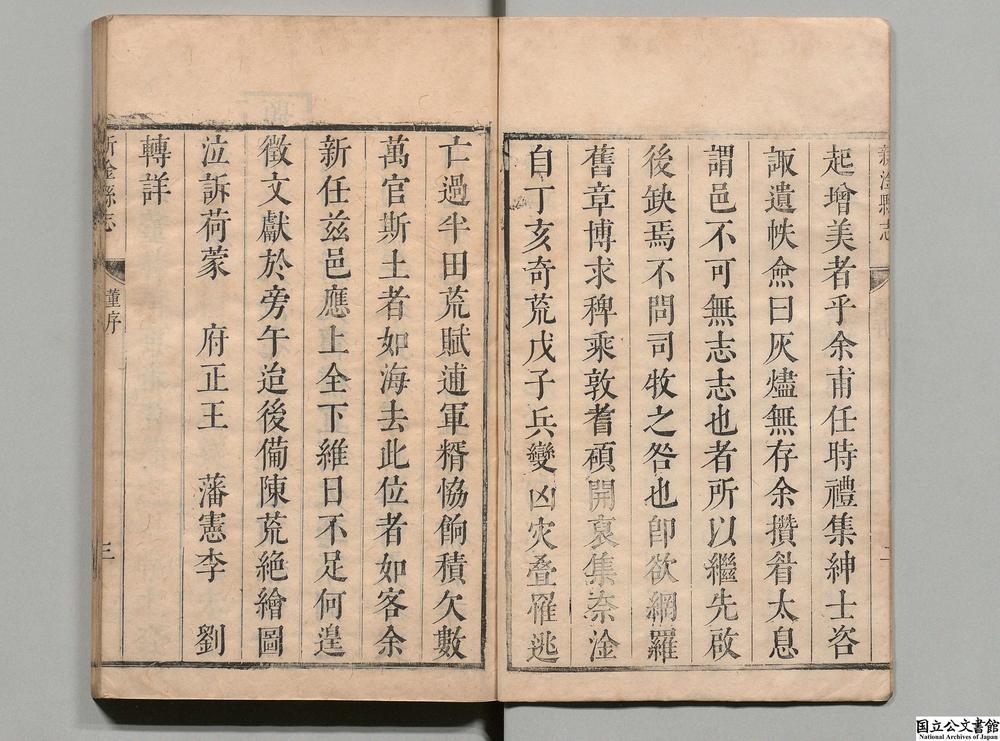 新淦縣志
二
起增美者乎余甫任時禮集紳士咨
諏遺帙僉曰灰燼無存余攢眉太息
謂邑不可無志志也者所以繼先啟
後缺焉不問司牧之咎也即欲網羅
舊章博求稗乘敦耆碩開裒集奈淦
自丁亥奇荒戊子兵變凶灾疊罹逃
亡過半田荒賦逋軍糈協餉積欠數
萬官斯土者如海去此位者如客余
新任茲邑應上全下維日不足何遑
徵文獻於旁午迨後備陳荒絶繪圖
泣訴荷蒙 府正王 藩憲李 劉
轉詳
新淦縣志
董序
三
国立公文書館
National Archives of Japan